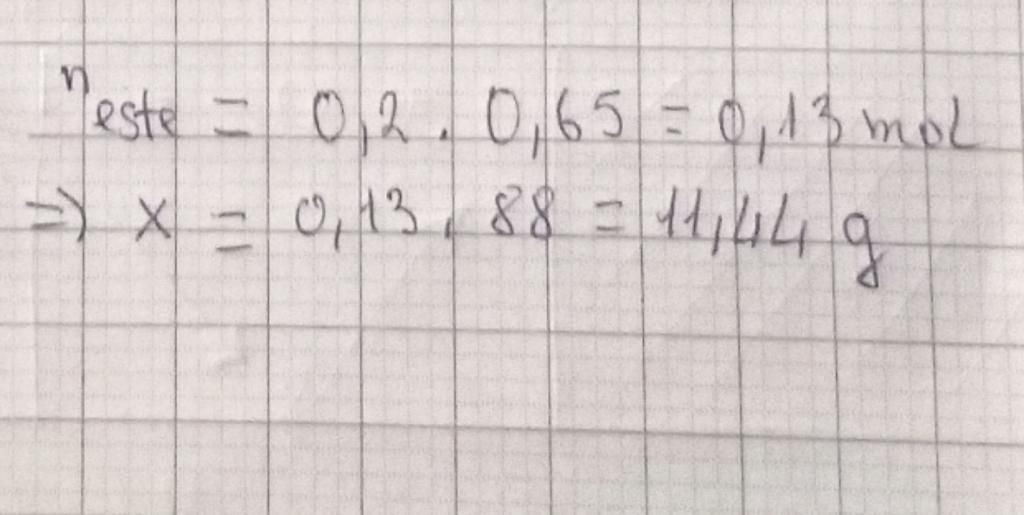 n este = 0,2 . 0,65 = 0,13 mol
=) x = 0,13 . 88 = 11,44 g